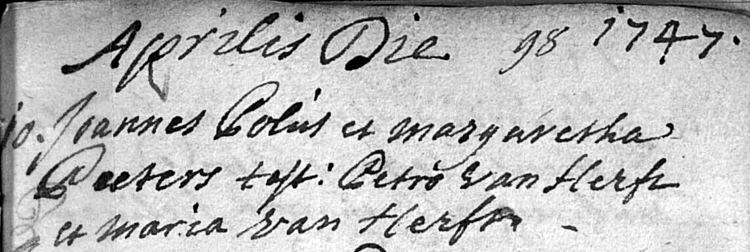 Aprilis Die 98 1747.
10. Joannes Colus et margaretha
Peeters test: Petro Van Herft
et maria Van Herft -